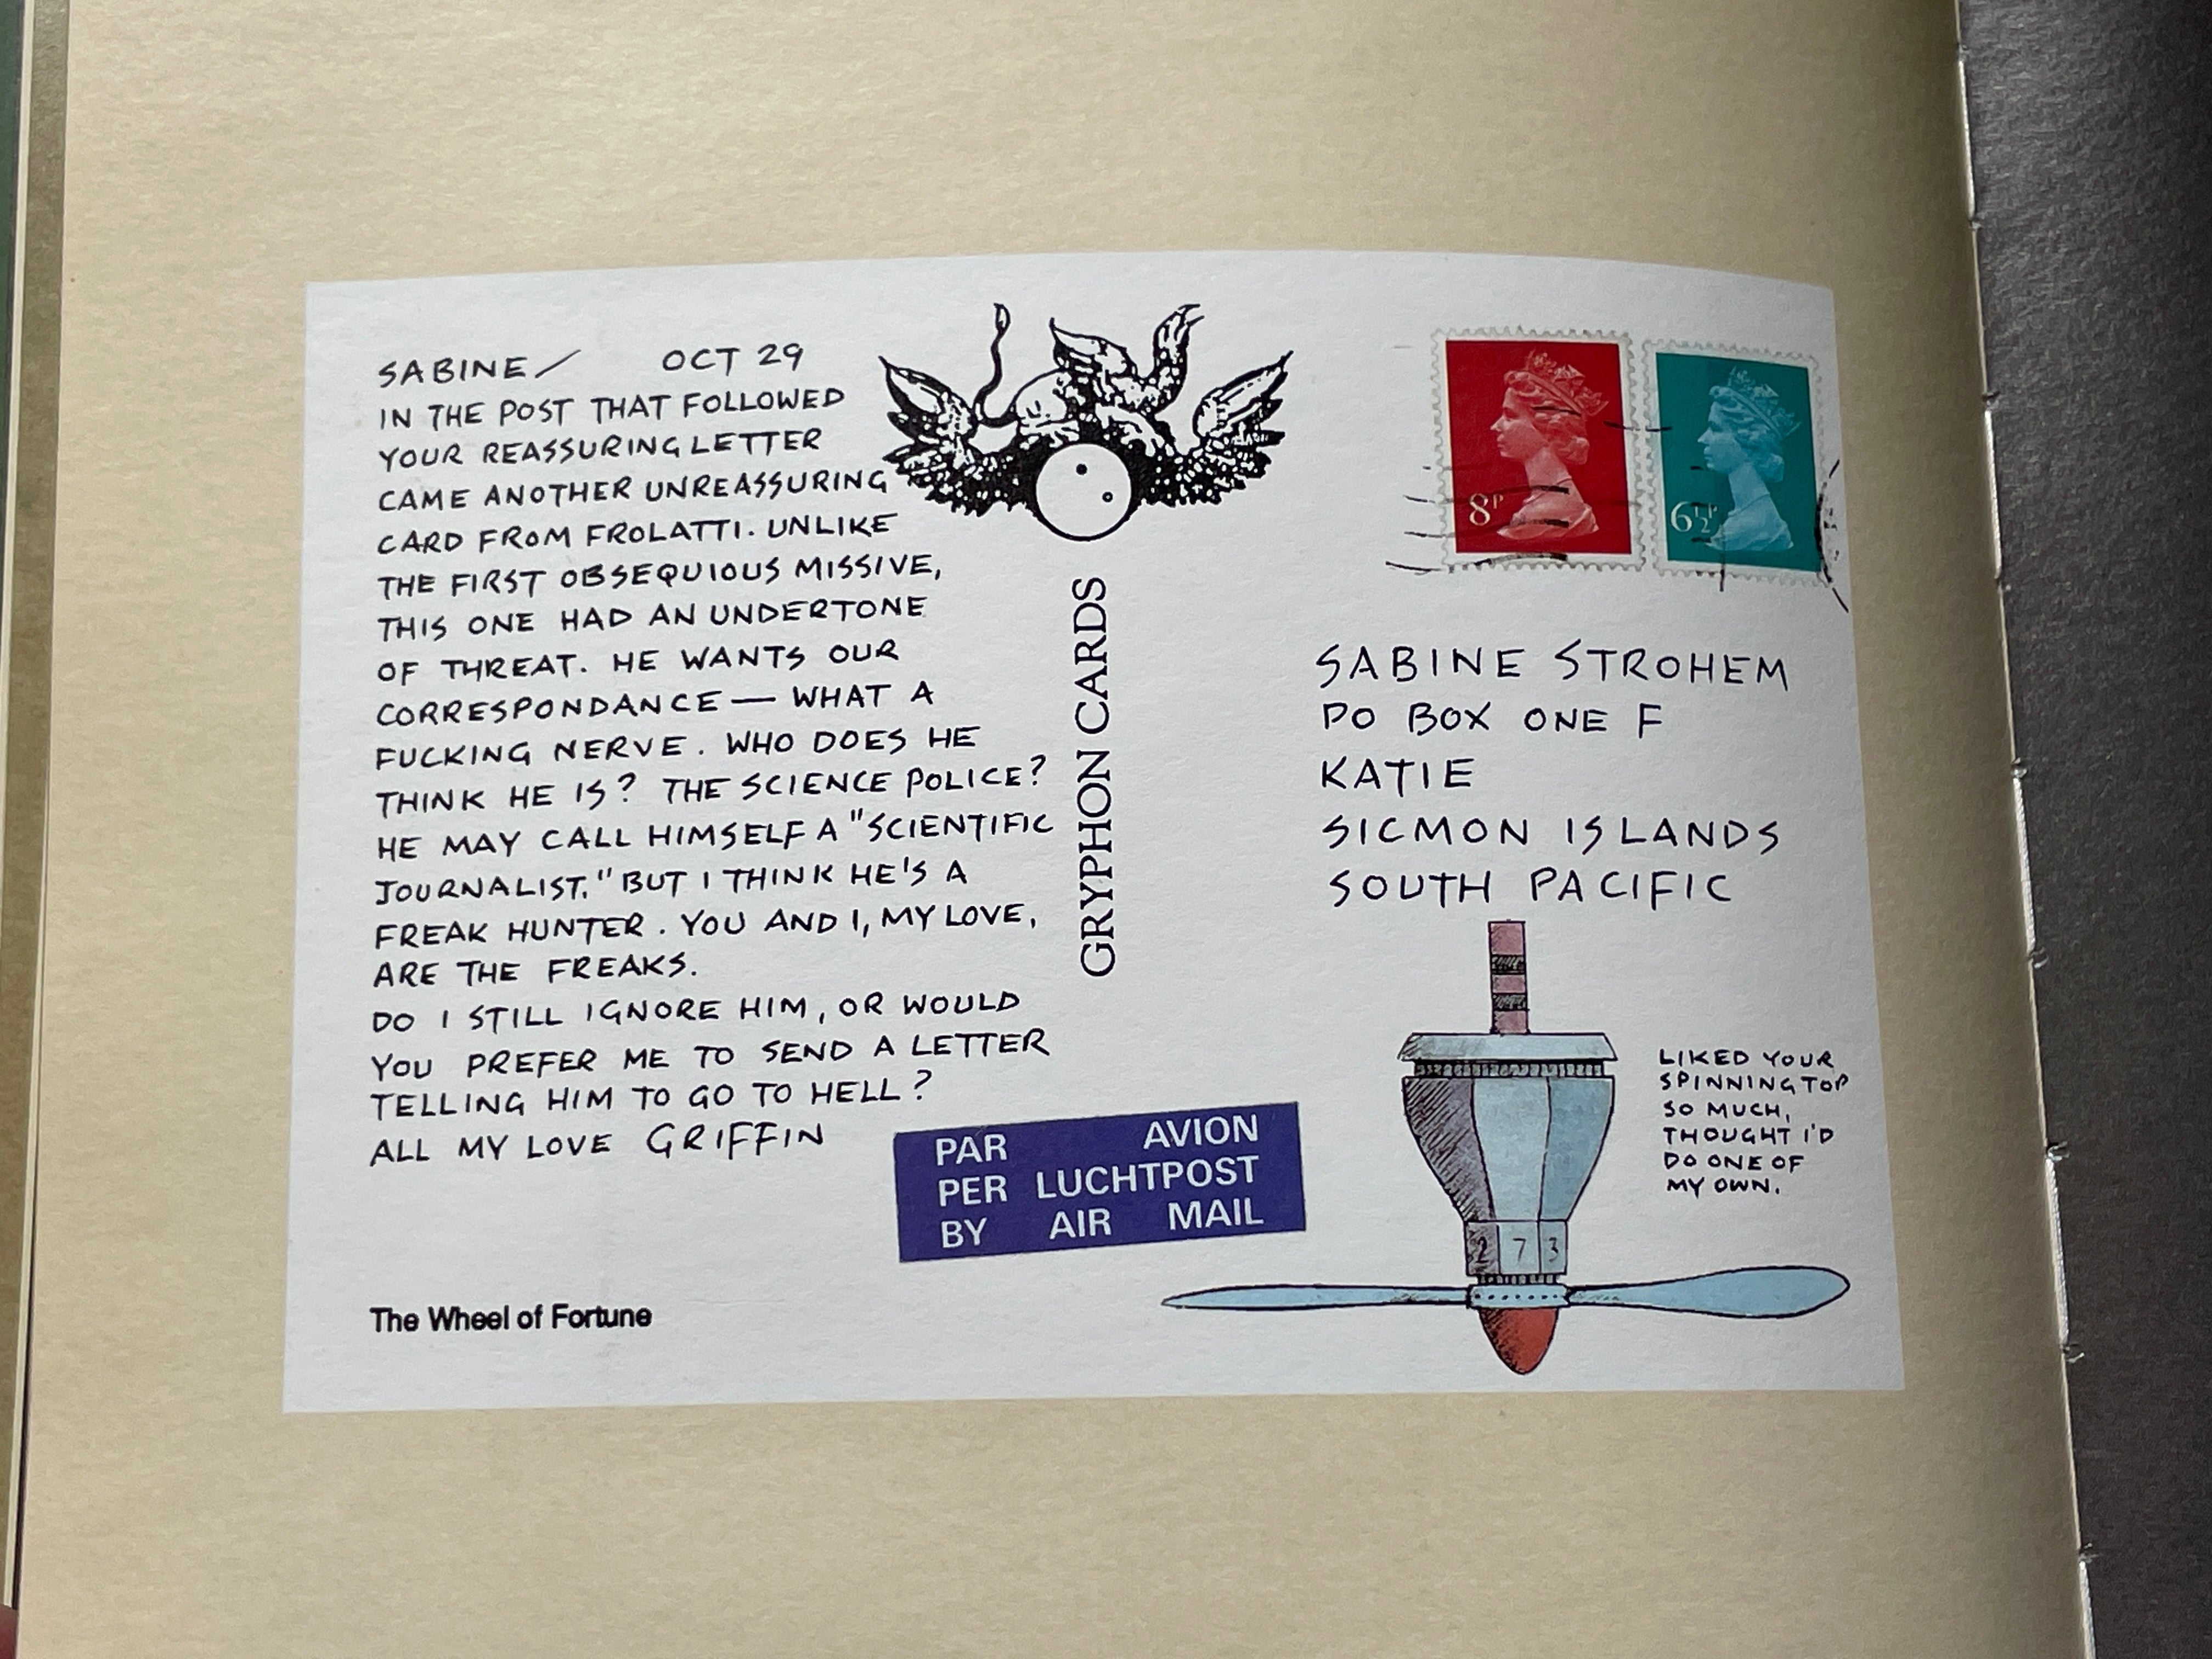 SABINE/ OCT 29
IN THE POST THAT FOLLOWED
YOUR REASSURING LETTER
CAME ANOTHER UNREASSURING
CARD FROM FROLATTI. UNLIKE
THE FIRST OBSEQUIOUS MISSIVE,
THIS ONE HAD AN UNDERTONE
OF THREAT. HE WANTS OUR
CORRESPONDANCE — WHAT A
FUCKING NERVE. WHO DOES HE
THINK HE IS? THE SCIENCE POLICE?
HE MAY CALL HIMSELF A "SCIENTIFIC
JOURNALIST." BUT I THINK HE'S A
FREAK HUNTER. YOU AND I, MY LOVE,
ARE THE FREAKS.
DO I STILL IGNORE HIM, OR WOULD
YOU PREFER ME TO SEND A LETTER
TELLING HIM TO GO TO HELL?
ALL MY LOVE GRIFFIN
The Wheel of Fortune
GRYPHON CARDS
PAR AVION
PER LUCHTPOST
BY AIR MAIL
8P
6½P
SABINE STROHEM
PO BOX ONE F
KATIE
SICMON ISLANDS
SOUTH PACIFIC
LIKED YOUR
SPINNING TOP
SO MUCH,
THOUGHT I'D
DO ONE OF
MY OWN.
2 7 3